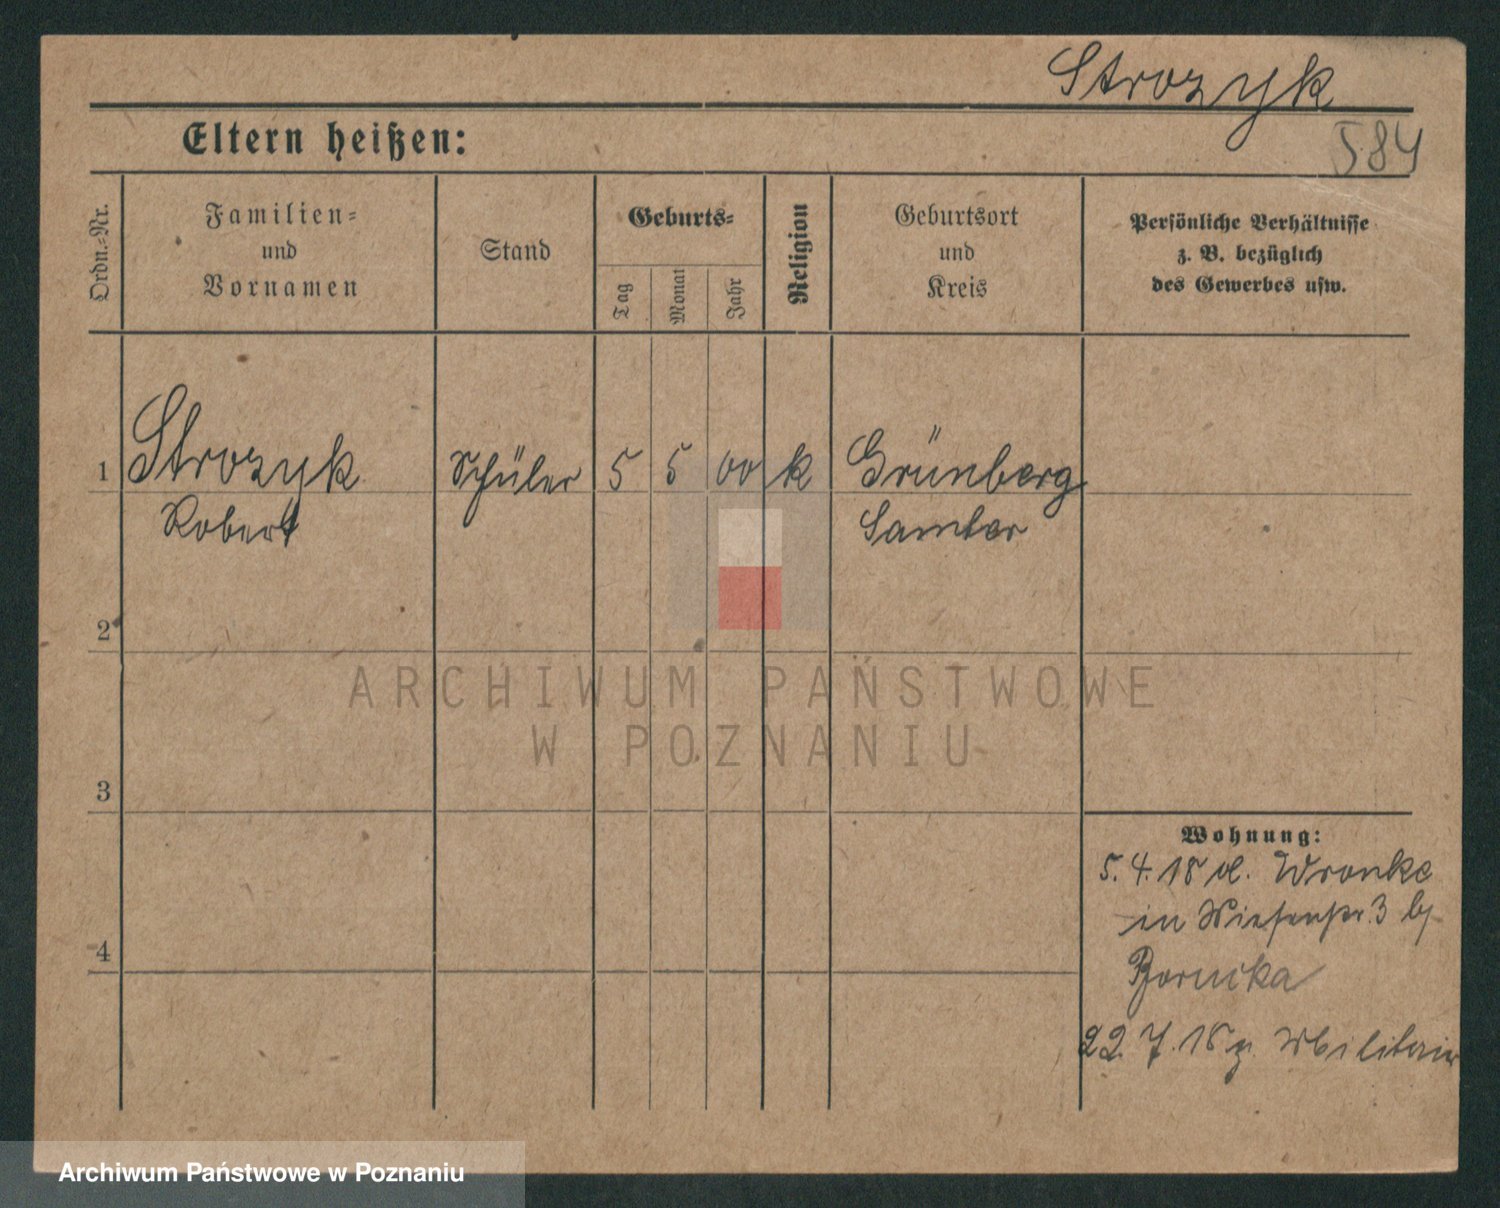 Strozyk
Eltern heißen:
584
Ordn.-Nr.
Familien-
und
Vornamen
Stand
Geburts-
Tag
Monat
Jahr
Religion
Geburtsort
und
Kreis
Persönliche Verhältnisse
z. B. bezüglich
des Gewerbes usw.
1 Strozyk Schüler 5 5 00 k Grünberg
Robert Samter
2
ARCHIWUM PAŃSTWOWE
W POZNANIU
3
Wohnung:
5. 4. 18 v. Wronke
in Wiesenstr. 3 bj
4
22. 7. 18 z. Militair
Archiwum Państwowe w Poznaniu